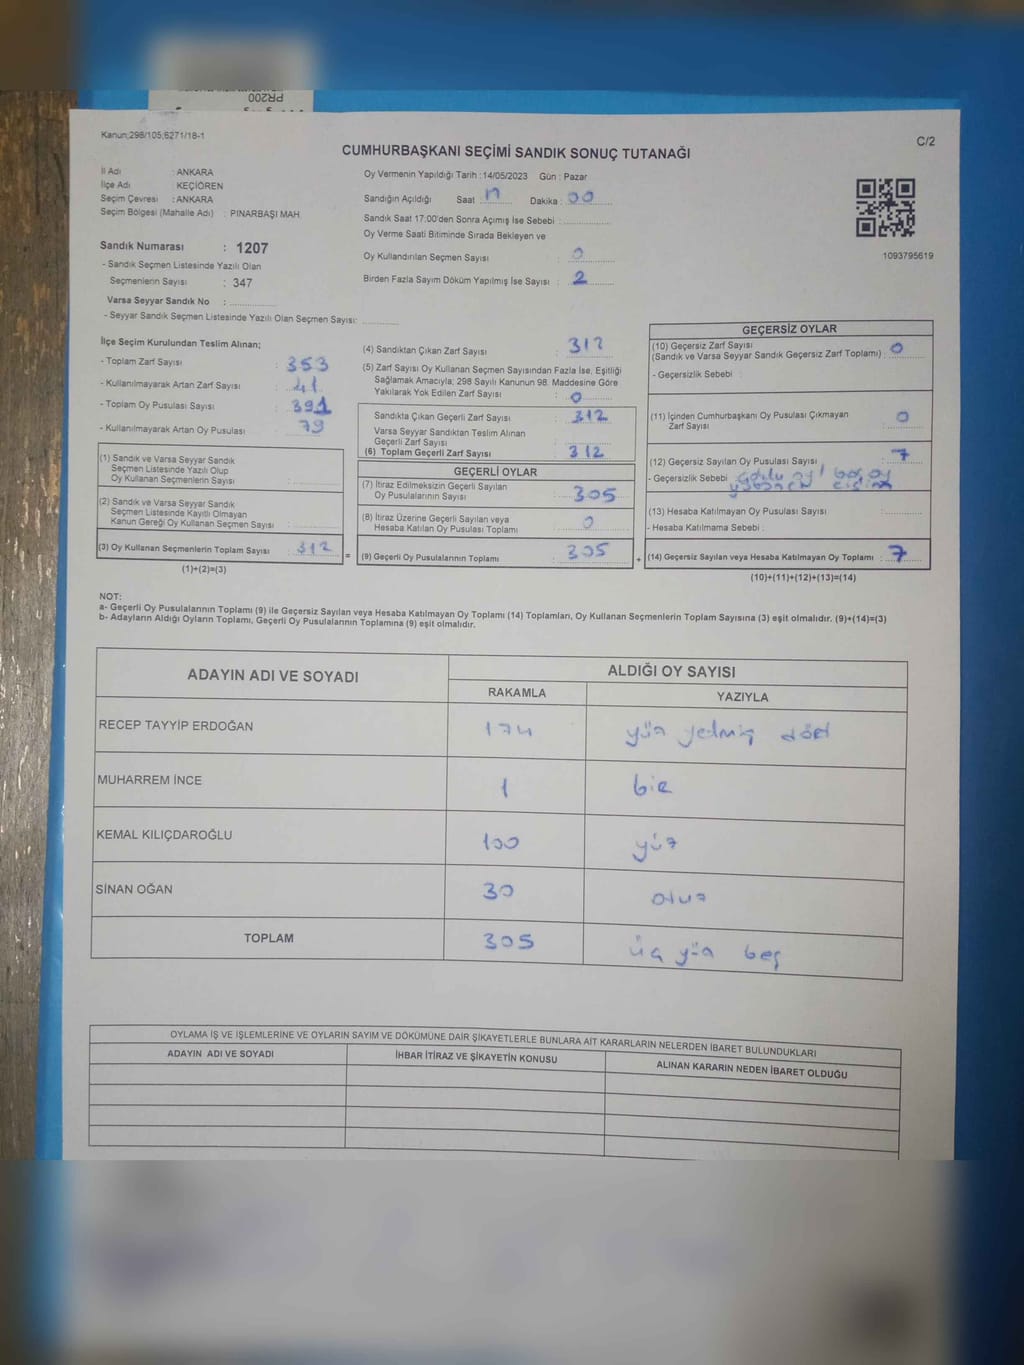 PR200
Kanun;298/105;6271/18-1
C/2
CUMHURBAŞKANI SEÇİMİ SANDIK SONUÇ TUTANAĞI
İl Adı : ANKARA
İlçe Adı : KEÇİÖREN
Seçim Çevresi : ANKARA
Seçim Bölgesi (Mahalle Adı) : PINARBAŞI MAH.
Sandık Numarası : 1207
- Sandık Seçmen Listesinde Yazılı Olan
Seçmenlerin Sayısı : 347
Varsa Seyyar Sandık No :
- Seyyar Sandık Seçmen Listesinde Yazılı Olan Seçmen Sayısı:
Oy Vermenin Yapıldığı Tarih :14/05/2023 Gün : Pazar
Sandığın Açıldığı Saat Dakika : 00
Sandık Saat 17:00'den Sonra Açımış İse Sebebi :
Oy Verme Saati Bitiminde Sırada Bekleyen ve
Oy Kullandırılan Seçmen Sayısı : 0
Birden Fazla Sayım Döküm Yapılmış İse Sayısı : 2
1093795619
İlçe Seçim Kurulundan Teslim Alınan;
- Toplam Zarf Sayısı : 353
- Kullanılmayarak Artan Zarf Sayısı : 41
- Toplam Oy Pusulası Sayısı : 391
- Kullanılmayarak Artan Oy Pusulası : 79
(1) Sandık ve Varsa Seyyar Sandık
Seçmen Listesinde Yazılı Olup
Oy Kullanan Seçmenlerin Sayısı :
(2) Sandık ve Varsa Seyyar Sandık
Seçmen Listesinde Kayıtlı Olmayan
Kanun Gereği Oy Kullanan Seçmen Sayısı :
(3) Oy Kullanan Seçmenlerin Toplam Sayısı : 312
(1)+(2)=(3)
=
(4) Sandıktan Çıkan Zarf Sayısı : 312
(5) Zarf Sayısı Oy Kullanan Seçmen Sayısından Fazla İse, Eşitliği
Sağlamak Amacıyla; 298 Sayılı Kanunun 98. Maddesine Göre
Yakılarak Yok Edilen Zarf Sayısı : 0
Sandıkta Çıkan Geçerli Zarf Sayısı : 312
Varsa Seyyar Sandıktan Teslim Alınan
Geçerli Zarf Sayısı :
(6) Toplam Geçerli Zarf Sayısı : 312
GEÇERLİ OYLAR
(7) İtiraz Edilmeksizin Geçerli Sayılan
Oy Pusulalarının Sayısı : 305
(8) İtiraz Üzerine Geçerli Sayılan veya
Hesaba Katılan Oy Pusulası Toplamı : 0
(9) Geçerli Oy Pusulalarının Toplamı : 305
+
GEÇERSİZ OYLAR
(10) Geçersiz Zarf Sayısı
(Sandık ve Varsa Seyyar Sandık Geçersiz Zarf Toplamı) : 0
- Geçersizlik Sebebi :
(11) İçinden Cumhurbaşkanı Oy Pusulası Çıkmayan
Zarf Sayısı : 0
(12) Geçersiz Sayılan Oy Pusulası Sayısı : 7
- Geçersizlik Sebebi : oy boş oy
(13) Hesaba Katılmayan Oy Pusulası Sayısı :
- Hesaba Katılmama Sebebi :
(14) Geçersiz Sayılan veya Hesaba Katılmayan Oy Toplamı : 7
(10)+(11)+(12)+(13)=(14)
NOT:
a- Geçerli Oy Pusulalarının Toplamı (9) ile Geçersiz Sayılan veya Hesaba Katılmayan Oy Toplamı (14) Toplamları, Oy Kullanan Seçmenlerin Toplam Sayısına (3) eşit olmalıdır. (9)+(14)=(3)
b- Adayların Aldığı Oyların Toplamı, Geçerli Oy Pusulalarının Toplamına (9) eşit olmalıdır.
ADAYIN ADI VE SOYADI ALDIĞI OY SAYISI
RAKAMLA YAZIYLA
RECEP TAYYİP ERDOĞAN 174 yüz yetmiş dört
MUHARREM İNCE 1 bir
KEMAL KILIÇDAROĞLU 100 yüz
SİNAN OĞAN 30 otuz
TOPLAM 305 üç yüz beş
OYLAMA İŞ VE İŞLEMLERİNE VE OYLARIN SAYIM VE DÖKÜMÜNE DAİR ŞİKAYETLERLE BUNLARA AİT KARARLARIN NELERDEN İBARET BULUNDUKLARI
ADAYIN ADI VE SOYADI İHBAR İTİRAZ VE ŞİKAYETİN KONUSU ALINAN KARARIN NEDEN İBARET OLDUĞU